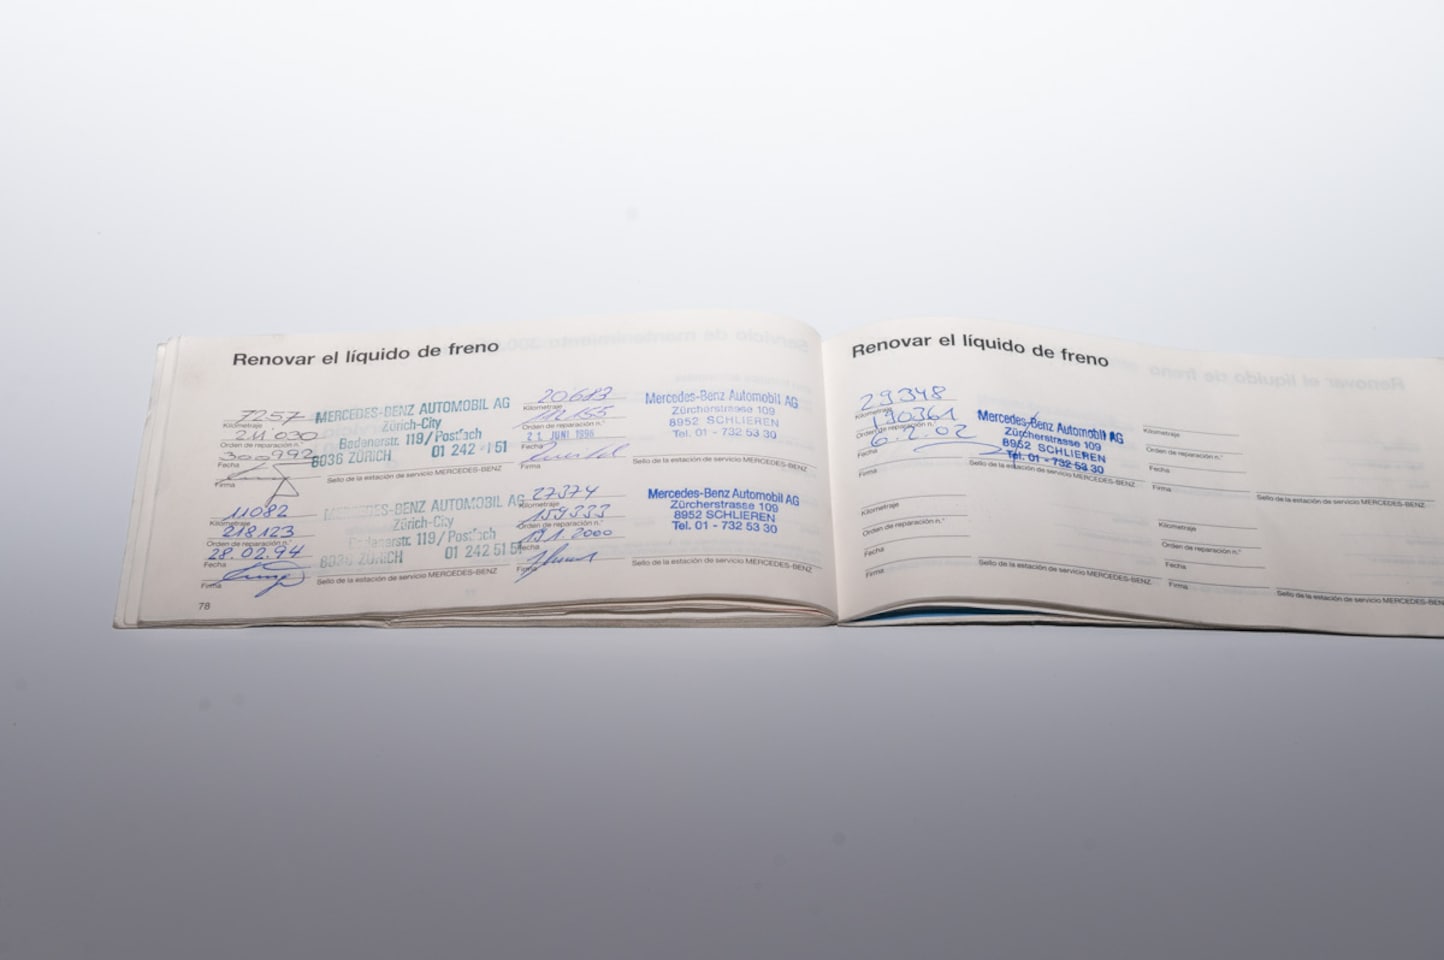 Renovar el líquido de freno
7257
Kilometraje
211'030
Orden de reparación n.°
300992
Fecha
Firma
MERCEDES-BENZ AUTOMOBIL AG
Zürich-City
Badenerstr. 119/Postfach
8036 ZÜRICH 01 242 51
Sello de la estación de servicio MERCEDES-BENZ
20683
Kilometraje
112155
Orden de reparación n.°
21. JUNI 1996
Fecha
Firma
Mercedes-Benz Automobil AG
Zürcherstrasse 109
8952 SCHLIEREN
Tel. 01 - 732 53 30
Sello de la estación de servicio MERCEDES-BENZ
11082
Kilometraje
218123
Orden de reparación n.°
28.02.94
Fecha
Firma
MERCEDES-BENZ AUTOMOBIL AG
Zürich-City
Badenerstr. 119/Postfach
8036 ZÜRICH 01 242 51 5
Sello de la estación de servicio MERCEDES-BENZ
27374
Kilometraje
159333
Orden de reparación n.°
19.1.2000
Fecha
Firma
Mercedes-Benz Automobil AG
Zürcherstrasse 109
8952 SCHLIEREN
Tel. 01 - 732 53 30
Sello de la estación de servicio MERCEDES-BENZ
78
Renovar el líquido de freno
29348
Kilometraje
190361
Orden de reparación n.°
6.2.02
Fecha
Firma
Mercedes-Benz Automobil AG
Zürcherstrasse 109
8952 SCHLIEREN
Tel. 01 - 732 53 30
Sello de la estación de servicio MERCEDES-BENZ
Kilometraje
Orden de reparación n.°
Fecha
Firma
Sello de la estación de servicio MERCEDES-BENZ
Kilometraje
Orden de reparación n.°
Fecha
Firma
Sello de la estación de servicio MERCEDES-BENZ
Kilometraje
Orden de reparación n.°
Fecha
Firma
Sello de la estación de servicio MERCEDES-BEN